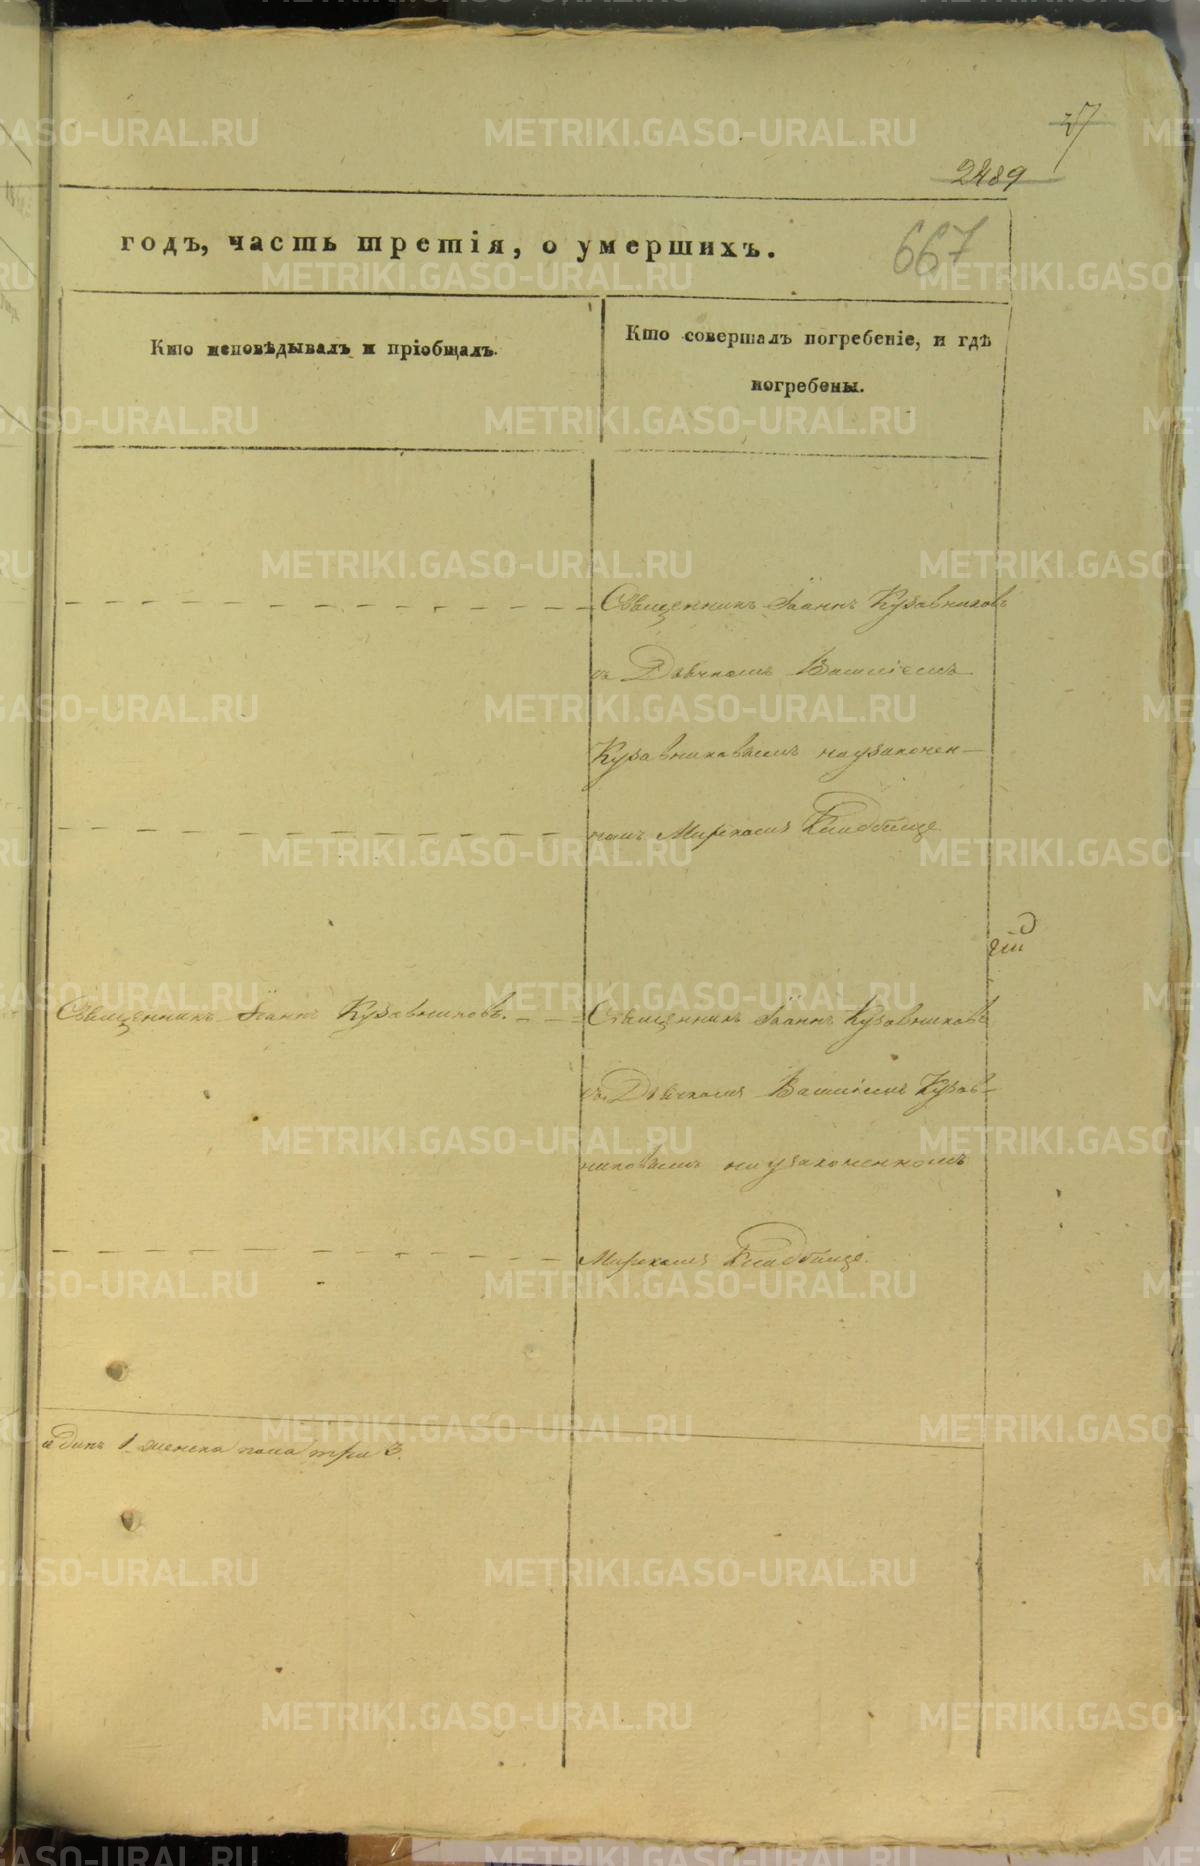 27
2489
годъ, часть третія, о умершихъ.
667
Кто исповѣдывалъ и пріобщалъ.
Кто совершалъ погребеніе, и гдѣ
погребены.
Священникъ Іоаннъ Кузовниковъ
съ Дьячкомъ
Кузовниковымъ на узаконен-
номъ Мирскомъ Кладбище
Священникъ Іоаннъ Кузовниковъ.
Священникъ Іоаннъ Кузовниковъ
съ Дьячкомъ Кузов-
никовымъ на узаконенномъ
Мирскомъ Кладбище.
единъ 1. женска пола три 3.
METRIKI.GASO-URAL.RU